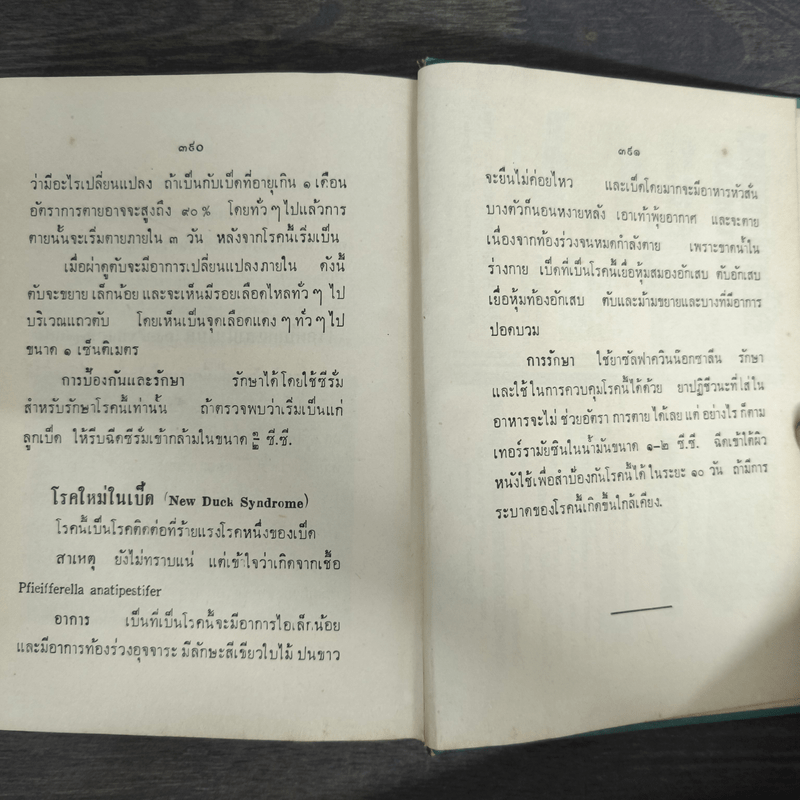 ๓๙๐
ว่ามีอะไรเปลี่ยนแปลง ถ้าเป็นกับเป็ดที่อายุเกิน ๑ เดือน
อัตราการตายอาจจะสูงถึง ๙๐ % โดยทั่ว ๆ ไปแล้วการ
ตายนั้นจะเริ่มตายภายใน ๓ วัน หลังจากโรคนี้เริ่มเป็น
เมื่อผ่าดูตับจะมีอาการเปลี่ยนแปลงภายใน ดังนี้
ตับจะขยาย เล็กน้อย และจะเห็นมีรอยเลือดไหลทั่ว ๆ ไป
บริเวณแถวตับ โดยเห็นเป็นจุดเลือดแดง ๆ ทั่ว ๆ ไป
ขนาด ๑ เซ็นติเมตร
การป้องกันและรักษา รักษาได้โดยใช้ซีรั่ม
สำหรับรักษาโรคนี้เท่านั้น ถ้าตรวจพบว่าเริ่มเป็นแก่
ลูกเป็ด ให้รีบฉีดซีรั่มเข้ากล้ามในขนาด ซี.ซี.
โรคใหม่ในเป็ด (New Duck Syndrome)
โรคนี้เป็นโรคติดต่อที่ร้ายแรงโรคหนึ่งของเป็ด
สาเหตุ ยังไม่ทราบแน่ แต่เข้าใจว่าเกิดจากเชื้อ
Pfieifferella anatipestifer
อาการ เป็นที่เป็นโรคนี้จะมีอาการไอเล็กน้อย
และมีอาการท้องร่วงอุจจาระ มีลักษะสีเขียวใบไม้ ปนขาว
๓๙๑
จะยืนไม่ค่อยไหว และเป็ดโดยมากจะมีอาหารหัวสั่น
บางตัวก็นอนหงายหลัง เอาเท้าพุ้ยอากาศ และจะตาย
เนื่องจากท้องร่วงจนหมดกำลังตาย เพราะขาดน้ำใน
ร่างกาย เป็ดที่เป็นโรคนี้เยื่อหุ้มสมองอักเสบ ตับอักเสบ
เยื่อหุ้มท้องอักเสบ ตับและม้ามขยายและบางที่มีอาการ
ปอดบวม
การรักษา ใช้ยาซัลฟาควินน๊อกซาลีน รักษา
และใช้ในการควบคุมโรคนี้ได้ด้วย ยาปฏิชีวนะที่ใส่ใน
อาหารจะไม่ ช่วยอัตรา การตาย ได้เลย แต่ อย่างไร ก็ตาม
เทอร์รามัยซินในน้ำมันขนาด ๑–๒ ซี.ซี. ฉีดเข้าใต้ผิว
หนังใช้เพื่อสำป้องกันโรคนี้ได้ ในระยะ ๑๐ วัน ถ้ามีการ
ระบาดของโรคนี้เกิดขึ้นใกล้เคียง.